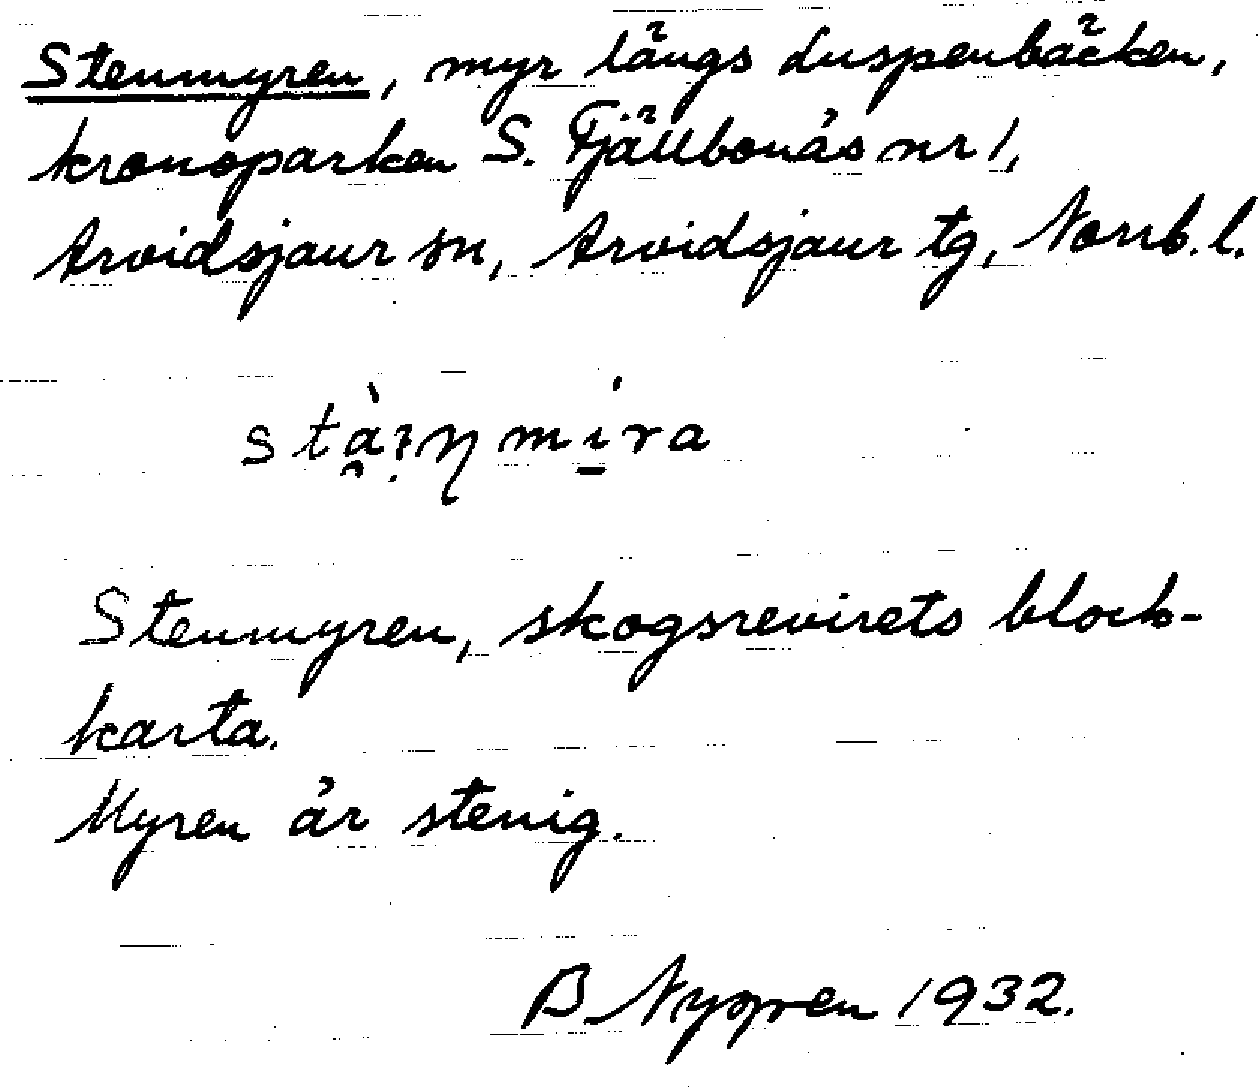 Stenmyren, myr längs Luspenbäcken,
kronoparken S. Fjällbonäs nr 1,
Arvidsjaur sn, Arvidsjaur tg, Norrb. l.
Stenmyren, skogsrevirets block-
karta.
Myren är stenig.
B Nygren 1932.